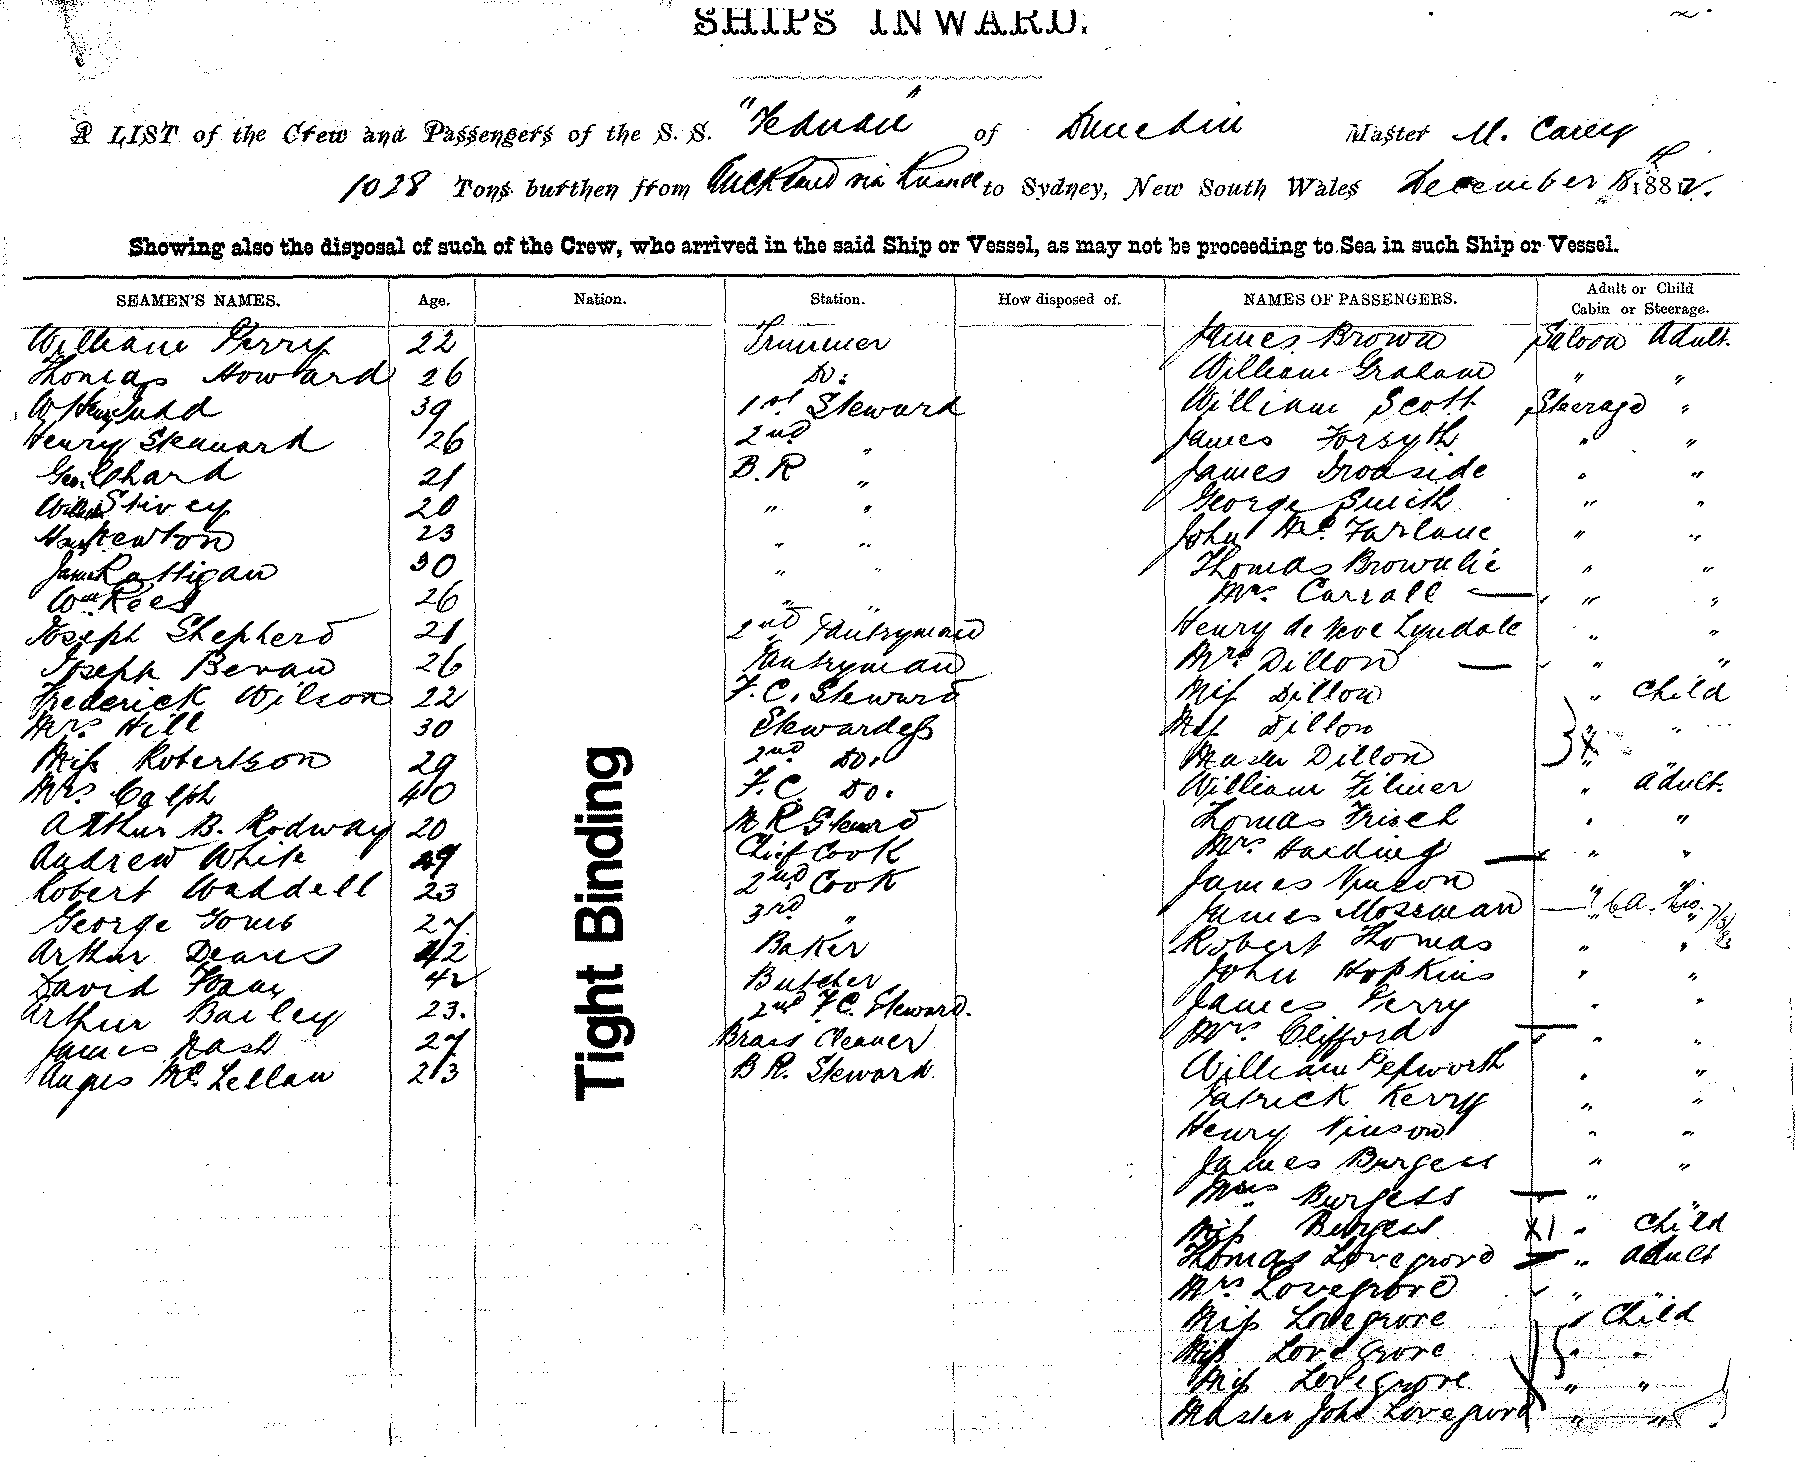 SHIPS INWARD.
A LIST of the Crew and Passengers of the S. S. "Te Anau" of Dunedin Master M. Carey
1028 Tons burthen from Auckland via Russell to Sydney, New South Wales December 18th 1882.
Showing also the disposal of such of the Crew, who arrived in the said Ship or Vessel, as may not be proceeding to Sea in such Ship or Vessel.
SEAMEN'S NAMES. Age. Nation. Station. How disposed of. NAMES OF PASSENGERS. Adult or Child Cabin or Steerage.
William Perry 22 Trimmer James Brown Saloon Adult.
Thomas Howard 26 Do. William Graham " "
Judd 39 1st Steward William Scott Steerage "
Henry Skennard 26 2nd " James Forsyth " "
Geo. Chard 21 B.R " James Ironside " "
William Stivey 20 " " George Smith " "
Newton 23 " " John McFarlane " "
James Rattigan 30 " " Thomas Brownlie " "
Wm Rees 26 " " Mrs Carrall " "
Joseph Shepherd 21 2nd Pantryman Henry de Neve Lyndale " "
Joseph Bevan 26 Pantryman Mrs Dillon " "
Frederick Wilson 22 F.C. Steward Miss Dillon " Child
Mrs Hill 30 Stewardess Miss Dillon " "
Miss Robertson 29 2nd Do. Master Dillon "
Mrs Calph 40 F.C. Do. William Filmer " Adult.
Arthur B. Rodway 20 M R Steward Thomas Frisch " "
Andrew White 49 Chief Cook Mrs Harding " "
Robert Waddell 23 2nd Cook James Vinson " "
George 27 3rd " James Moseman "
Arthur Deans 42 Baker Robert Thomas " "
David 42 Butcher John Hopkins " "
Arthur Bailey 23. 2nd F.C. Steward. James Perry " "
James Dash 27 Brass Cleaner Mrs Clifford " "
Angus McLellan 23 B R. Steward. William Pepworth " "
Patrick Kerry " "
Henry Vinson " "
James Burgess " "
Mrs Burgess " "
Miss Burgess X1 " Child
Thomas Lovegrove " Adult
Mrs Lovegrove " "
Miss Lovegrove " Child
Miss Lovegrove " "
Miss Lovegrove " "
Master John Lovegrove " "
Tight Binding